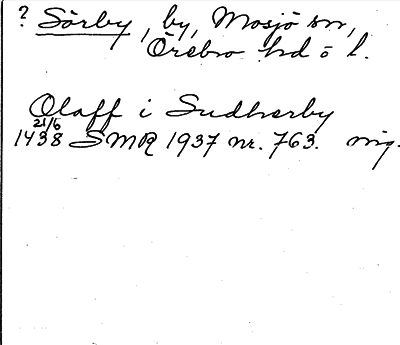 ? Sörby, by, Mosjö sn,
Örebro hd o l.
Olaff i Sudherby
21/6
1438 SMR 1937 nr. 763. mig.